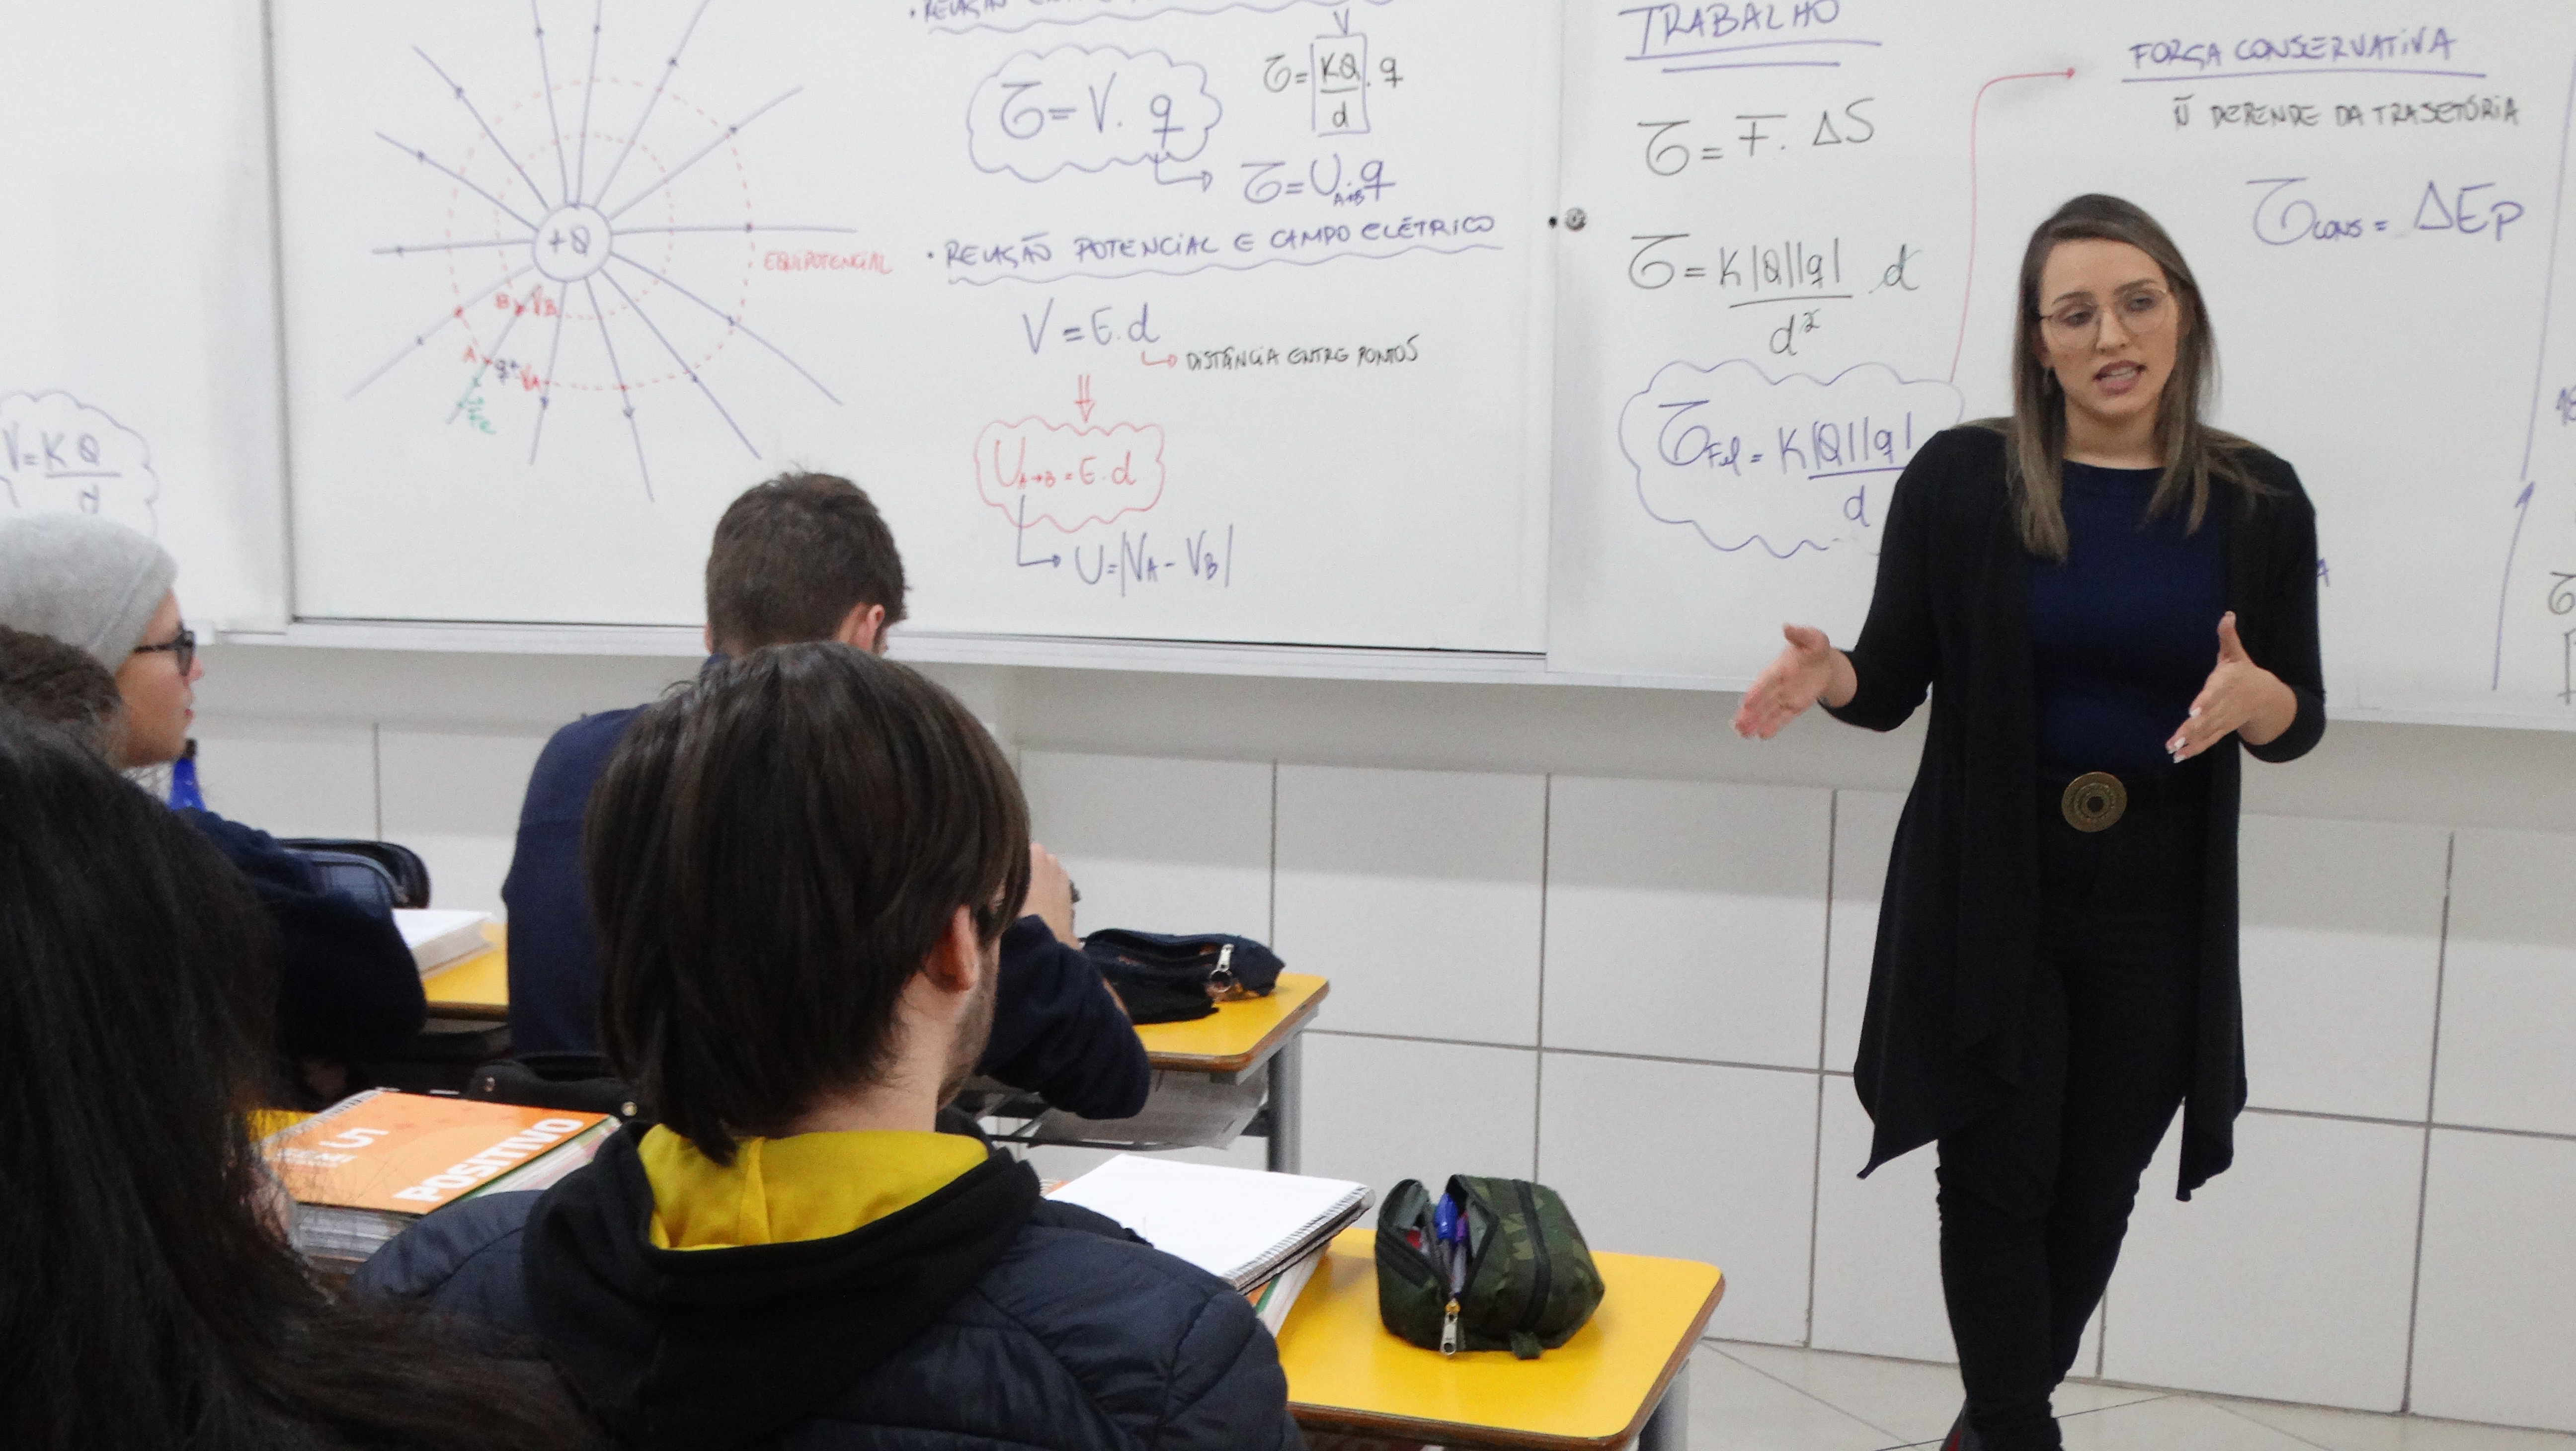 V = K Q
d
+Q
EQUIPOTENCIAL
B VB
A q+ VA
Fe
• RELAÇÃO
V
τ = V. q
τ = KQ . q
d
τ = U A→B . q
• RELAÇÃO POTENCIAL E CAMPO ELÉTRICO
V = E.d
↳ DISTÂNCIA ENTRE PONTOS
U A→B = E.d
U = |VA - VB|
TRABALHO
τ = F. ΔS
τ = K|Q||q| . d
d²
τ Fel = K|Q||q|
d
FORÇA CONSERVATIVA
Ñ DEPENDE DA TRAJETÓRIA
τ cons = ΔEp
U1
POSITIVO